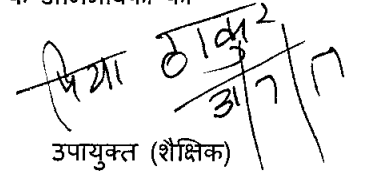 के अभिभावकों को
प्रिया ठाकुर
उपायुक्त (शैक्षिक)